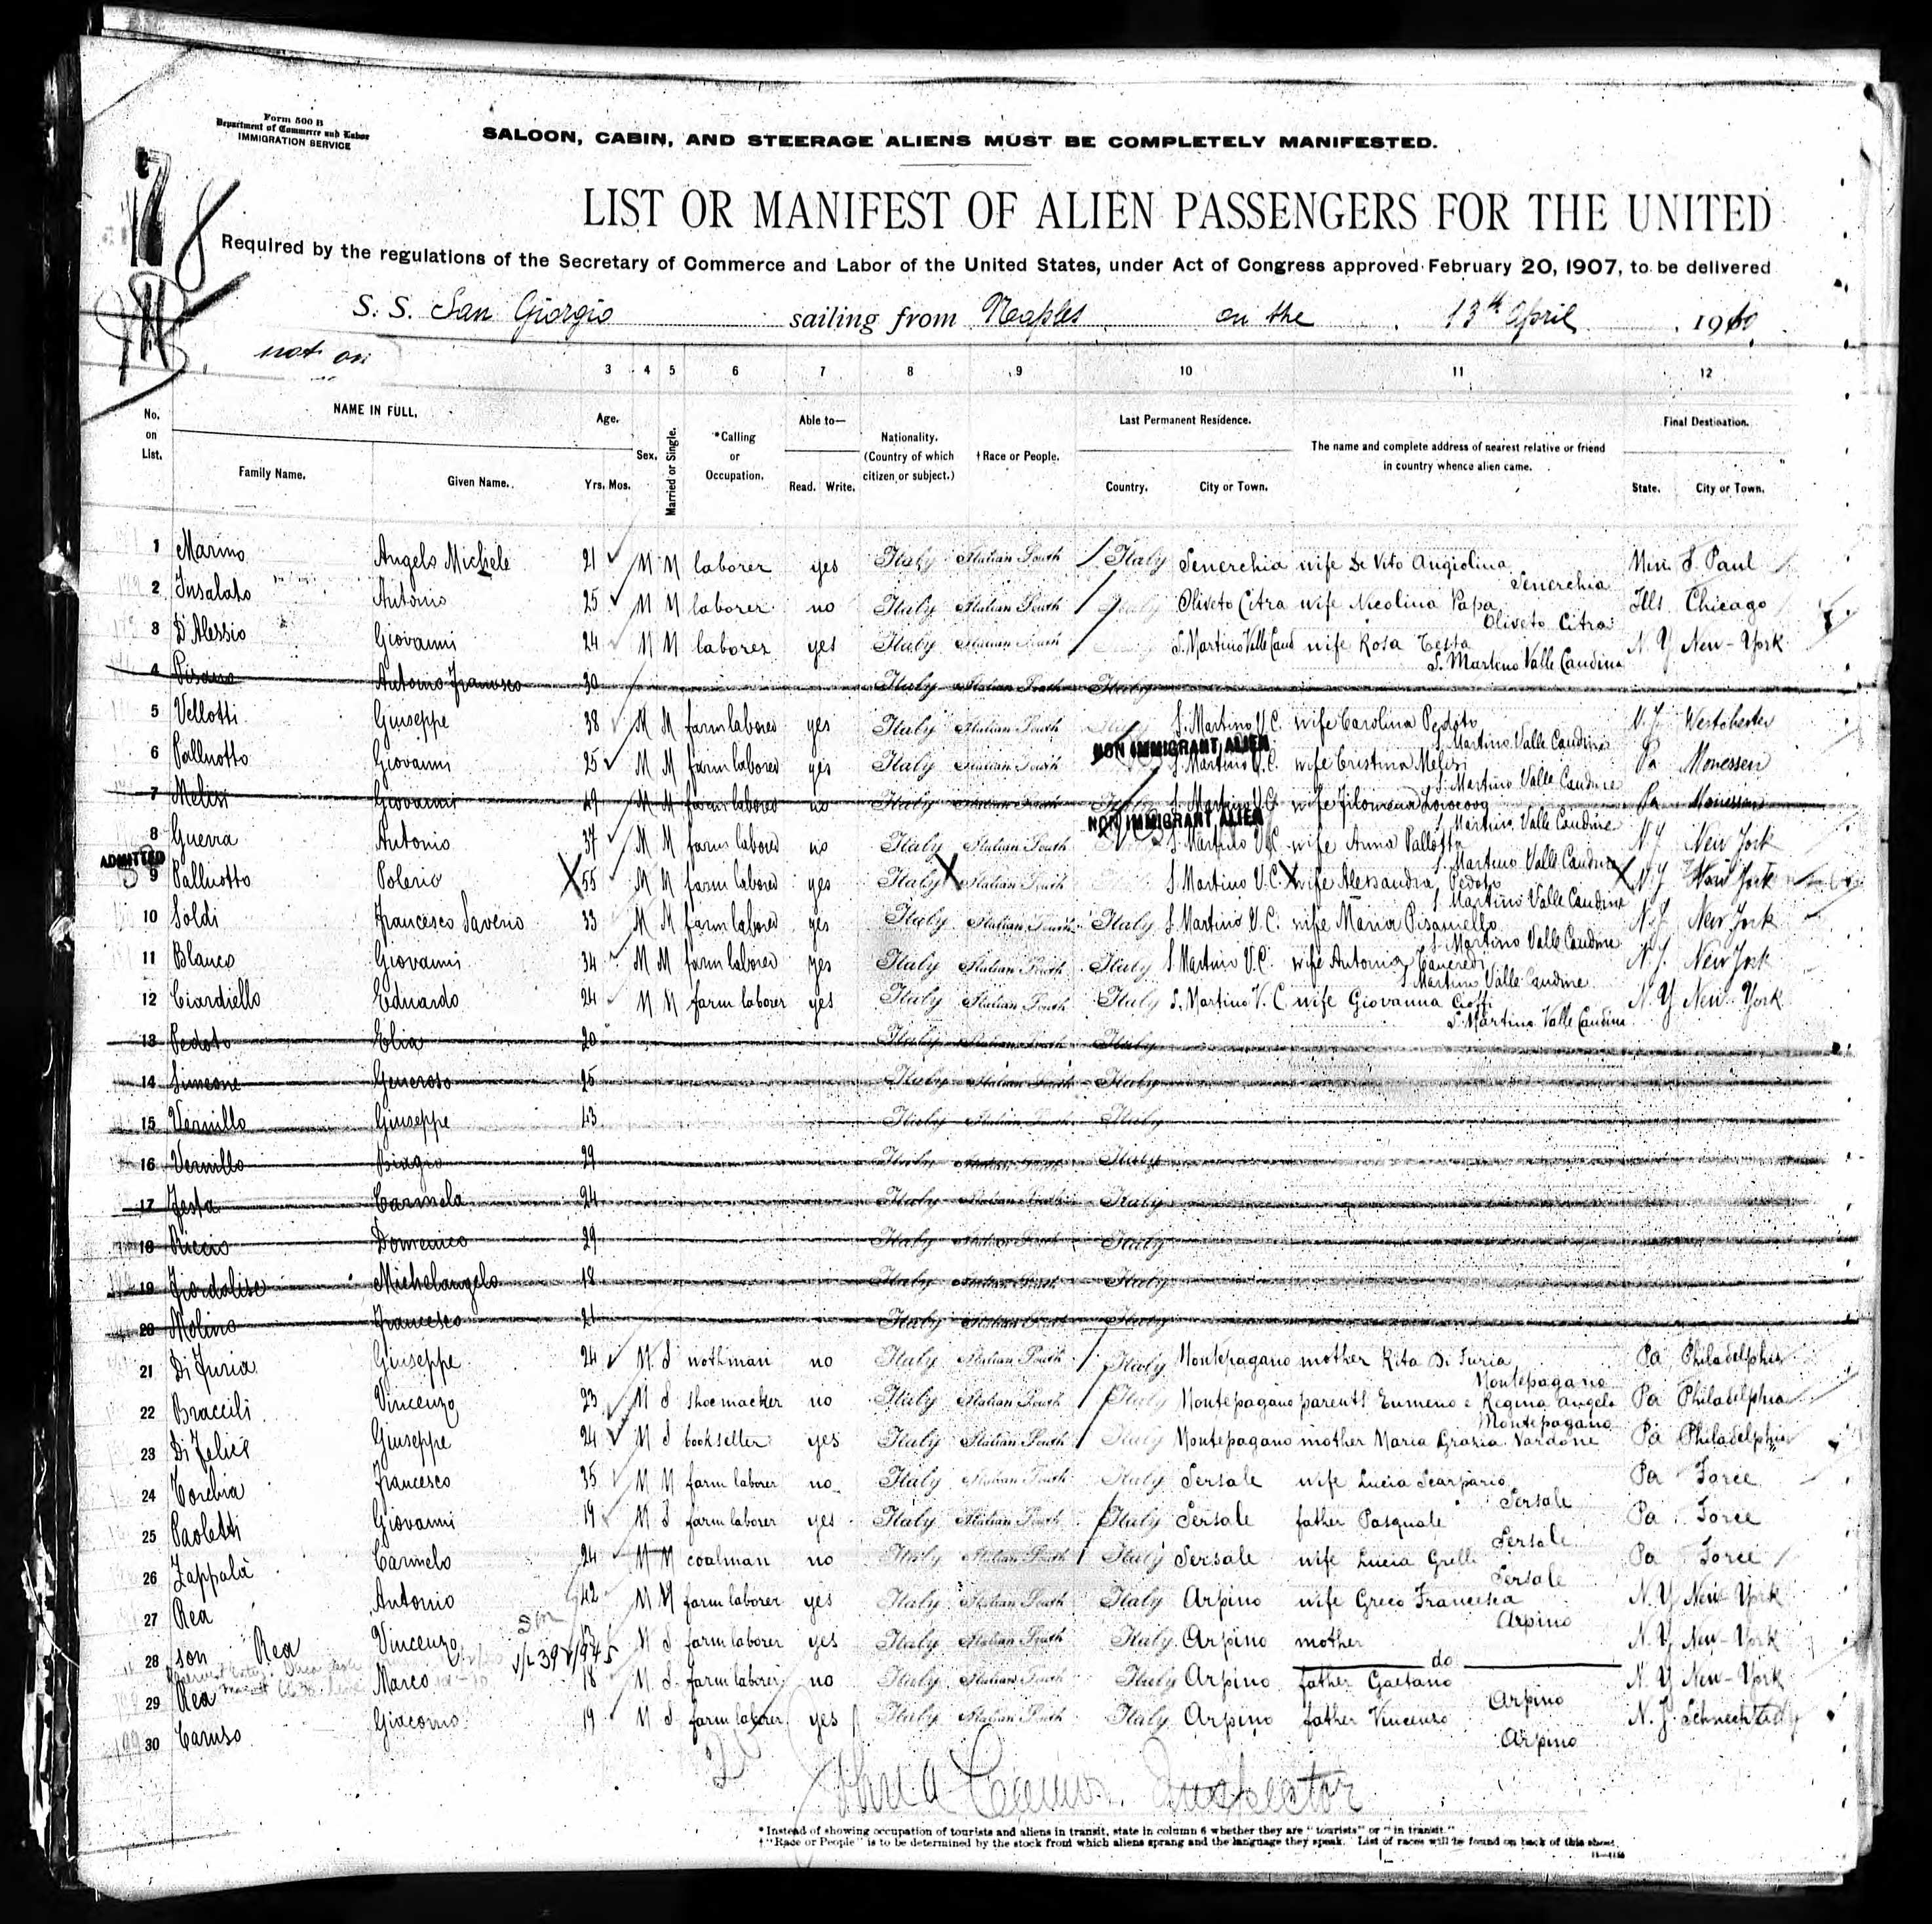 Form 500 B
Department of Commerce and Labor
IMMIGRATION SERVICE
SALOON, CABIN, AND STEERAGE ALIENS MUST BE COMPLETELY MANIFESTED.
LIST OR MANIFEST OF ALIEN PASSENGERS FOR THE UNITED
Required by the regulations of the Secretary of Commerce and Labor of the United States, under Act of Congress approved February 20, 1907, to be delivered
S. S. San Giorgio sailing from Naples on the 13th April 1910
not on
3 4 5 6 7 8 9 10 11 12
No. on List. NAME IN FULL. Family Name. Given Name. Age. Yrs. Mos. Sex. Married or Single. *Calling or Occupation. Able to— Read. Write. Nationality. (Country of which citizen or subject.) †Race or People. Last Permanent Residence. Country. City or Town. The name and complete address of nearest relative or friend in country whence alien came. Final Destination. State. City or Town.
1 Marino Angelo Michele 21 M M laborer yes Italy Italian South Italy Senerchia wife De Vito Angiolina Senerchia Min S. Paul
2 Insalato Antonio 25 M M laborer no Italy Italian South Italy Oliveto Citra wife Nicolina Papa Oliveto Citra Ills Chicago
3 D'Alessio Giovanni 24 M M laborer yes Italy Italian South S. Martino Valle Caud wife Rosa Testa S. Martino Valle Caudina N. Y New-York
4 Pisano Antonio Francesco 30 Italy Italian South Italy
5 Vellotti Giuseppe 38 M M farm labored yes Italy Italian South S. Martino V. C. wife Carolina Pedoto S. Martino Valle Caudina N. J. Westchester
NON IMMIGRANT ALIEN
6 Palluotto Giovanni 25 M M farm labored yes Italy Italian South S. Martino V. C. wife Cristina Melisi S. Martino Valle Caudine Pa Monessen
7 Melisi Giovanni 49 M M farm labored no Italy Italian South Italy S. Martino V. C. wife Filomena S. Martino Valle Caudine Pa Monessen
NON IMMIGRANT ALIEN
8 Guerra Antonio 37 M M farm labored no Italy Italian South S. Martino V. C. wife Anna Pallotta S. Martino Valle Caudine N. J. New York
ADMITTED
9 Palluotto Polerio 55 M M farm labored yes Italy Italian South S. Martino V. C. wife Alessandra Pedoto S. Martino Valle Caudine N. J. New York
10 Soldi Francesco Saverio 33 M M farm labored yes Italy Italian South Italy S. Martino V. C. wife Maria Pisaniello S. Martino Valle Caudine N. J. New York
11 Blanco Giovanni 34 M M farm labored yes Italy Italian South Italy S. Martino V. C. wife Antonia Tancredi S. Martino Valle Caudine N. J. New York
12 Ciardiello Eduardo 24 M M farm laborer yes Italy Italian South Italy S. Martino V. C wife Giovanna Cioffi S. Martino Valle Caudina N. Y New-York
13 Pedoto Elia 20 Italy Italian South Italy
14 Simeone Generoso 25 Italy Italian South Italy
15 Vernillo Giuseppe 43 Italy Italian South Italy
16 Vernillo Biagio 29 Italy Italian South Italy
17 Testa Carmela 24 Italy Italian South Italy
18 Riccio Domenico 29 Italy Italian South Italy
19 Fiordalise Michelangelo 18 Italy Italian South Italy
20 Molino Francesco 21 Italy Italian South Italy
21 Di Furia Giuseppe 24 M. S nothman no Italy Italian South Italy Montepagano mother Rita Di Furia Montepagano Pa Philadelphia
22 Braccili Vincenzo 23 M S shoemacker no Italy Italian South Italy Montepagano parents Eumeno e Regina Angelo Montepagano Pa Philadelphia
23 Di Felice Giuseppe 24 M S bookseller yes Italy Italian South Italy Montepagano mother Maria Grazia Nardone Pa Philadelphia
24 Torchia Francesco 35 M M farm laborer no Italy Italian South Italy Sersale wife Lucia Scarpario Sersale Pa Force
25 Paoletti Giovanni 19 M S farm laborer yes Italy Italian South Italy Sersale father Pasquale Sersale Pa Force
26 Zappala Carmelo 24 M M coalman no Italy Italian South Italy Sersale wife Lucia Grelli Sersale Pa Force
27 Rea Antonio 42 M M farm laborer yes Italy Italian South Italy Arpino wife Greco Francesca Arpino N. Y New York
28 son Rea Vincenzo M S farm laborer yes Italy Italian South Italy Arpino mother do N. Y New-York
29 Rea Marco 18 M S farm laborer no Italy Italian South Italy Arpino father Gaetano Arpino N. Y New-York
30 Caruso Giacomo 19 M S farm laborer yes Italy Italian South Italy Arpino father Vincenzo Arpino N. J. Schnechtady
Inspector
*Instead of showing occupation of tourists and aliens in transit, state in column 6 whether they are "tourists" or "in transit."
†"Race or People" is to be determined by the stock from which aliens sprang and the language they speak. List of races will be found on back of this sheet.